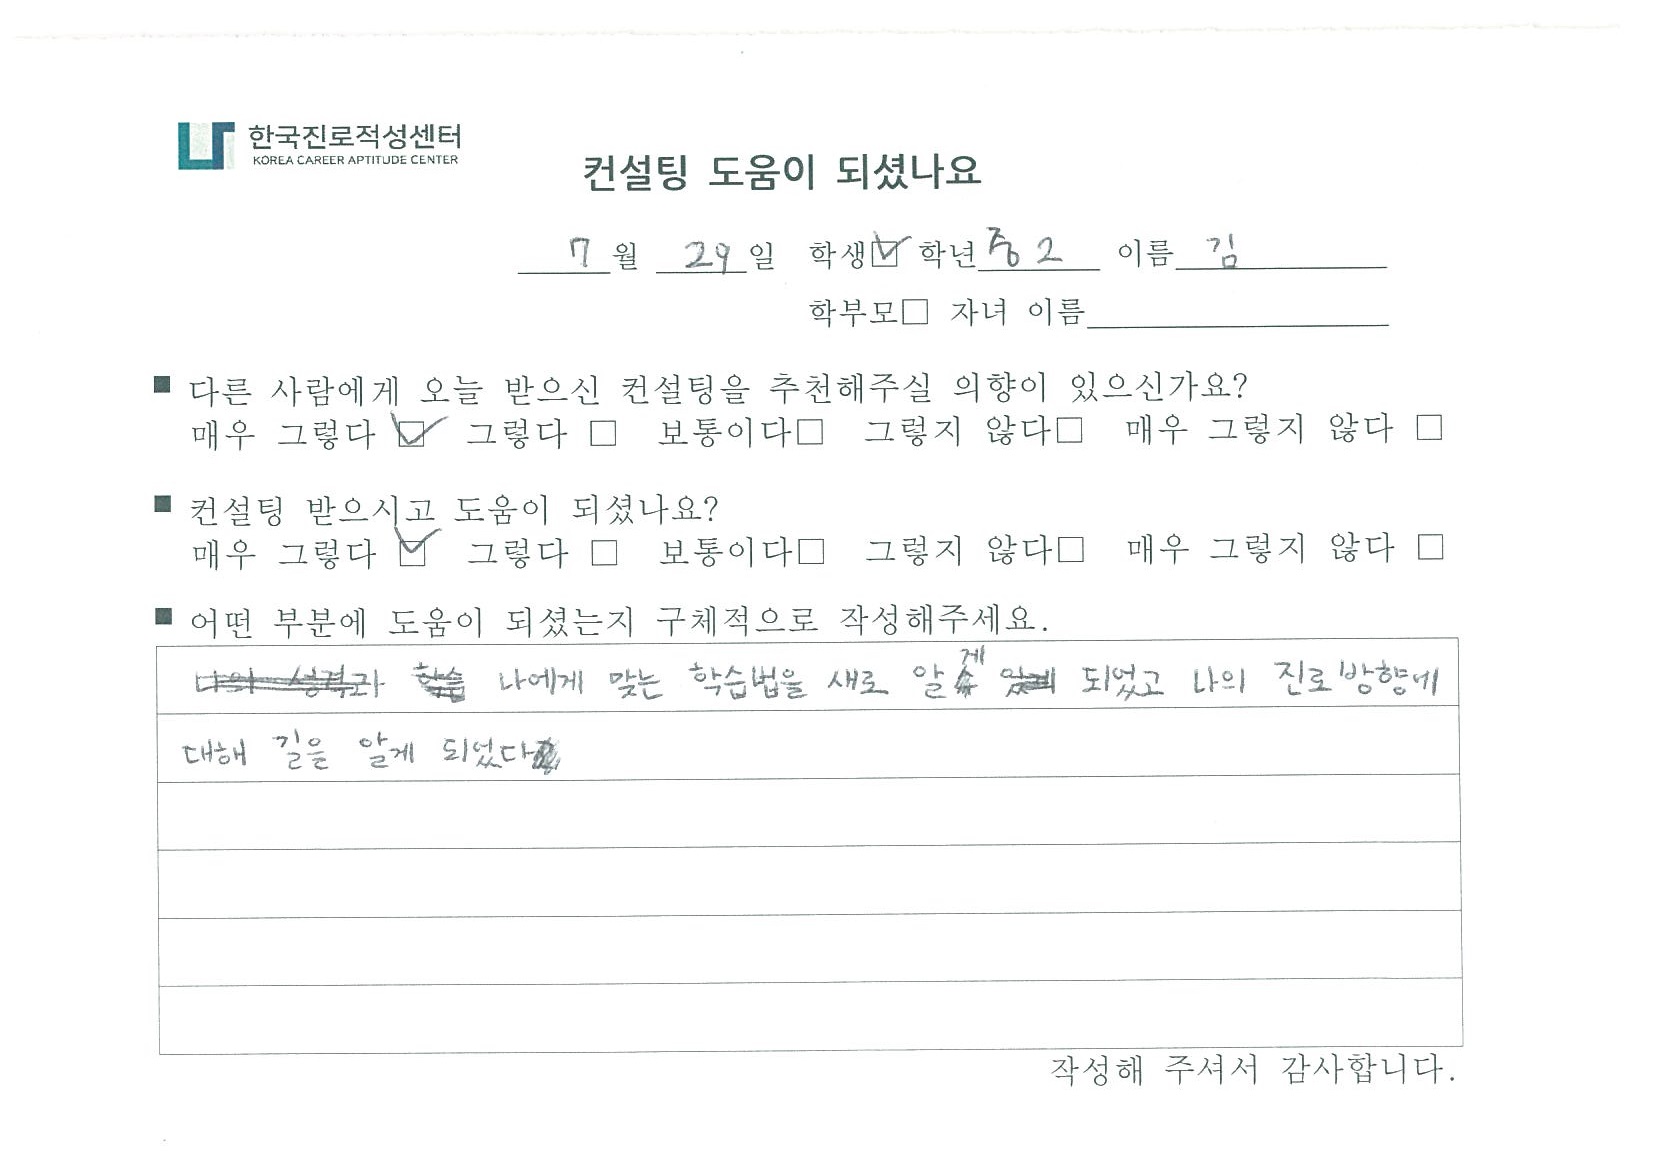 한국진로적성센터
KOREA CAREER APTITUDE CENTER
컨설팅 도움이 되셨나요
7월 29일 학생☑ 학년 중2 이름 김
학부모□ 자녀 이름
■ 다른 사람에게 오늘 받으신 컨설팅을 추천해주실 의향이 있으신가요?
매우 그렇다 ☑ 그렇다 □ 보통이다□ 그렇지 않다□ 매우 그렇지 않다 □
■ 컨설팅 받으시고 도움이 되셨나요?
매우 그렇다 ☑ 그렇다 □ 보통이다□ 그렇지 않다□ 매우 그렇지 않다 □
■ 어떤 부분에 도움이 되셨는지 구체적으로 작성해주세요.
나에게 맞는 학습법을 새로 알게 되었고 나의 진로방향에
대해 길을 알게 되었다
작성해 주셔서 감사합니다.